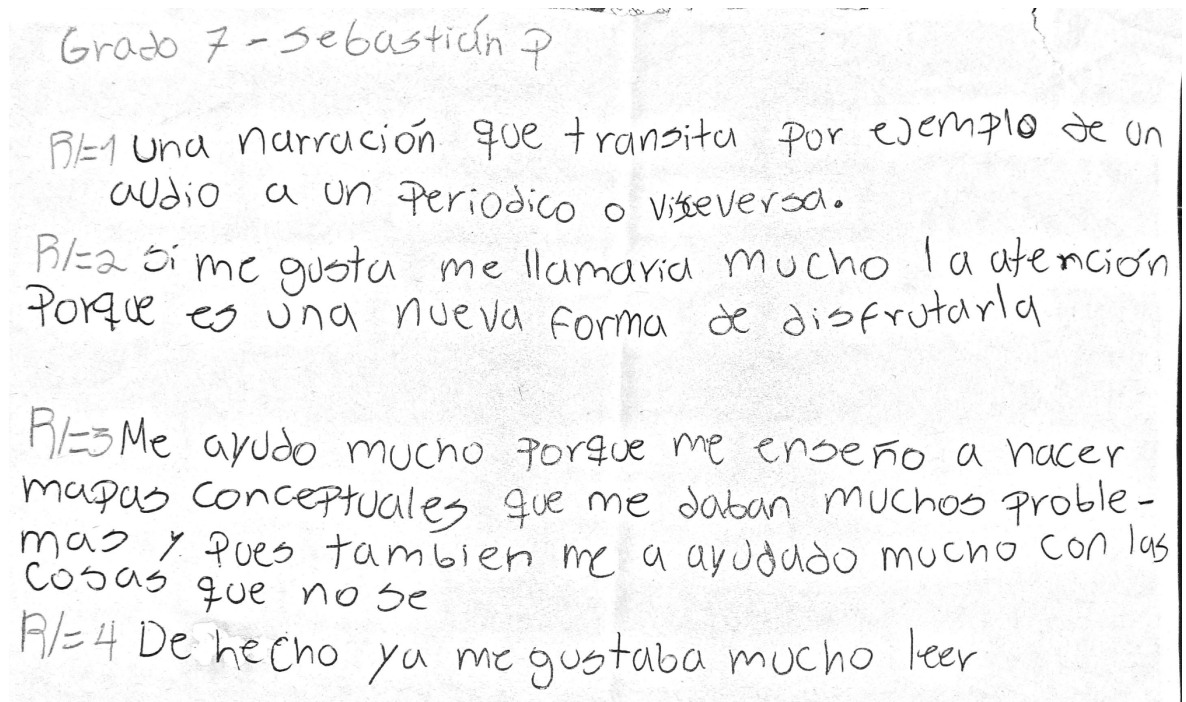 Grado 7 - Sebastián P
R/=1 Una narración que transita por ejemplo de un
audio a un periodico o viseversa.
R/=2 Si me gusta me llamaria mucho la atención
Porque es una nueva forma de disfrutarla
R/=3 Me ayudo mucho porque me enseño a hacer
mapas conceptuales que me daban muchos proble-
mas y pues tambien me a ayudado mucho con las
cosas que no se
R/=4 De hecho ya me gustaba mucho leer